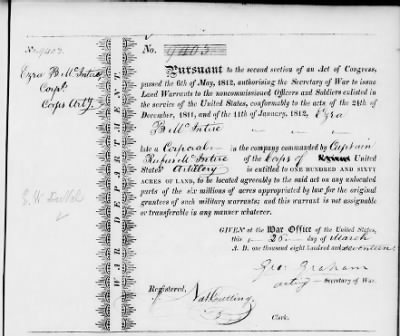 No. 9403
Ezra B McIntire
Corpl.
Corps Arty
WAR DEPARTMENT
No. 9403
Pursuant to the second section of an Act of Congress,
passed the 6th of May, 1812, authorising the Secretary of War to issue
Land Warrants to the noncommissioned Officers and Soldiers enlisted in
the service of the United States, conformably to the acts of the 24th of
December, 1811, and of the 11th of January, 1812, Ezra
B McIntire
late a Corporal in the company commanded by Captain
Rufus McIntire of the Corps of United
States Artillery is entitled to ONE HUNDRED AND SIXTY
ACRES OF LAND, to be located agreeably to the said act on any unlocated
parts of the six millions of acres appropriated by law for the original
grantees of such military warrants; and this warrant is not assignable
or transferable in any manner whatever.
GIVEN at the War Office of the United States,
this 25 day of March
A. D. one thousand eight hundred and seventeen
Geo: Graham
acting Secretary of War.
Registered,
Nat Cutting
Clerk.